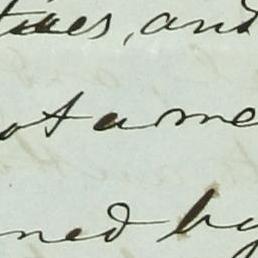 tues, and
ot a me
ned by